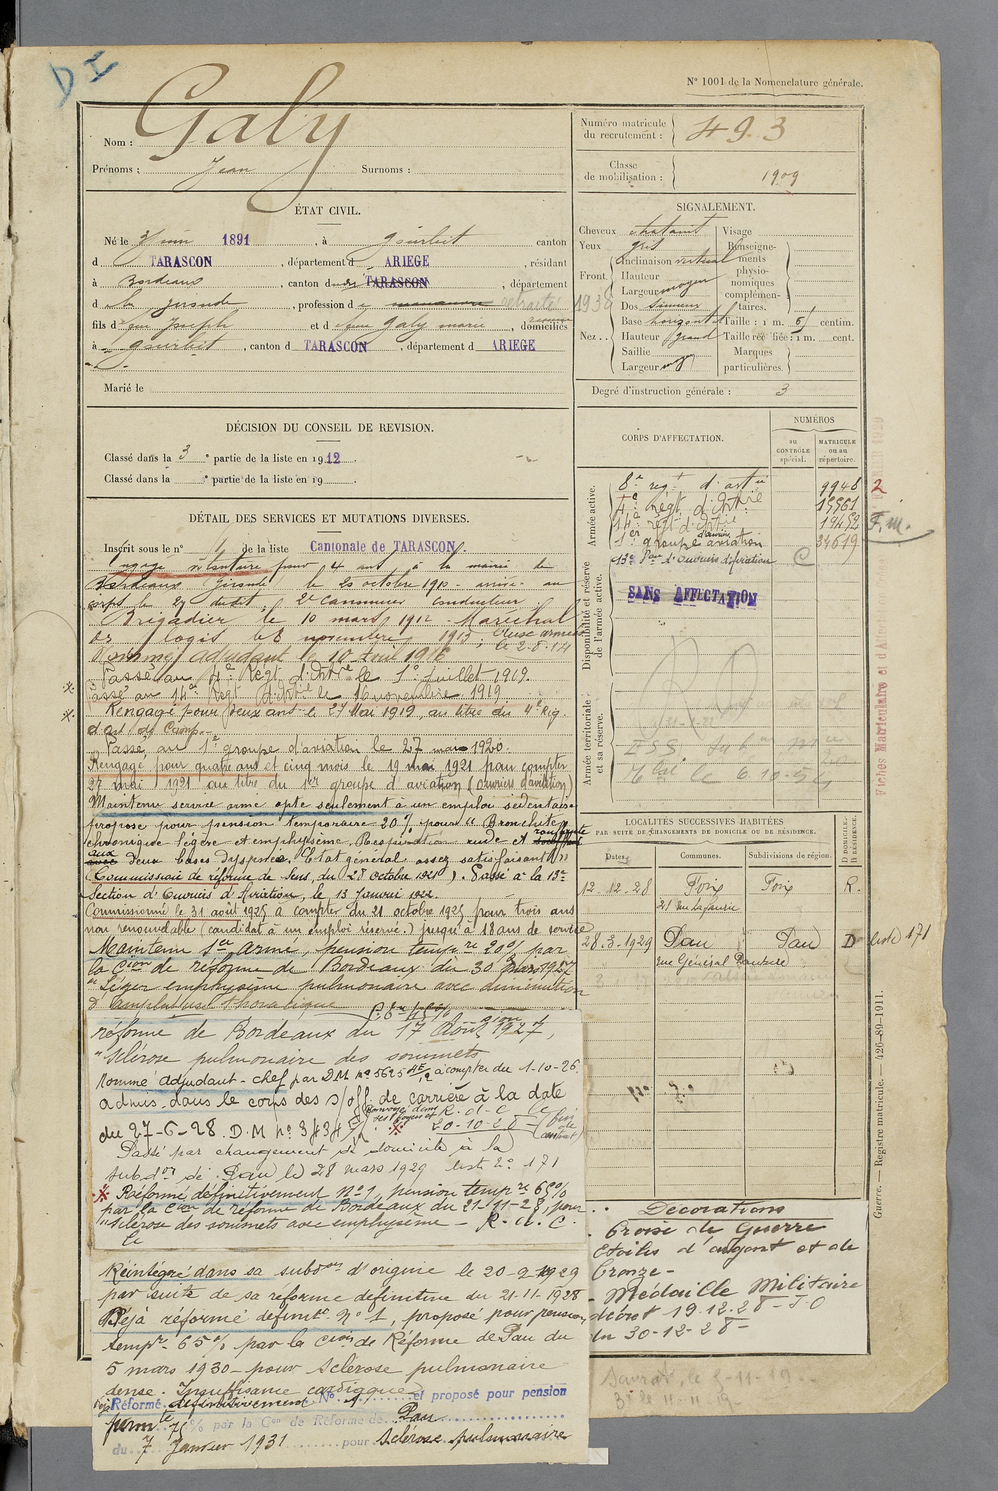 D I
N° 1001 de la Nomenclature générale.
Nom : Galy
Prénoms : Jean Surnoms :
Numéro matricule du recrutement : 493
Classe de mobilisation : 1909
ÉTAT CIVIL.
Né le 3 juin 1891, à Gourbit canton
d TARASCON, département d ARIEGE, résidant
à Bordeaux, canton d TARASCON, département
d la Gironde, profession d retraité 1938
fils d feu Joseph et d feue Galy Marie, domiciliés
à Gourbit, canton d TARASCON, département d ARIEGE
Marié le
SIGNALEMENT.
Cheveux chatains Visage
Yeux gris Renseignements physionomiques complémentaires.
Front Inclinaison vertical
Hauteur
Largeur moyen
Nez Dos sinueux
Base horizontal Taille : 1 m. centim.
Hauteur grand Taille rectifiée : 1 m. cent.
Saillie Marques particulières.
Largeur moy
Degré d'instruction générale : 3
DÉCISION DU CONSEIL DE REVISION.
Classé dans la 3e partie de la liste en 1912.
Classé dans la e partie de la liste en 19
CORPS D'AFFECTATION.
NUMÉROS
au CONTRÔLE spécial.
MATRICULE ou au répertoire.
Armée active.
8e régt d'artie 9948 2
4e régt d'Artie 15961
14e régt d'Artie 19452 F.m.
1er groupe d'aviation 34619
13e Son d'ouvriers d'aviation C
Disponibilité et réserve de l'armée active.
SANS AFFECTATION
Armée territoriale et sa réserve.
DÉTAIL DES SERVICES ET MUTATIONS DIVERSES.
Inscrit sous le n° 4 de la liste Cantonale de TARASCON.
Engagé volontaire pour 4 ans à la mairie de
Bordeaux Gironde le 20 octobre 1910 arrivé au
corps le 23 dudit, 2e Canonnier conducteur
Brigadier le 10 mars 1912 Maréchal
des logis le 8 novembre 1913,
le 2-8-14
Nommé adjudant le 10 Août 1916
Passé au 4e Régt d'Artie le 1er juillet 1919.
Passé au 14e Régt d'Artie le 16 novembre 1919
Rengagé pour deux ans le 27 Mai 1919 au titre du 4e Rég.
d'art de Camp.
Passé au 1er groupe d'aviation le 27 mai 1920.
Rengagé pour quatre ans et cinq mois le 19 mai 1921 pour compter
27 mai 1921 au titre du 1er groupe d'aviation (ouvriers d'aviation)
Maintenu service armé apte seulement à un emploi sédentaire
proposé pour pension temporaire 20% pour "Bronchite
chronique légère et emphysème. Respiration rude et ronflante
aux deux bases dyspnée. Etat général assez satisfaisant"
(Commission de réforme de Sens, du 28 octobre 1921). Passé à la 13e
Section d'Ouvriers d'Aviation, le 13 Janvier 1922.
Commissionné le 31 août 1925 à compter du 21 octobre 1925 pour trois ans
non renouvelable (candidat à un emploi réservé.) jusqu'à 18 ans de service
Maintenu Sce Armé, pension tempre 20% par
la Cion de réforme de Bordeaux du 30 Mars 1927
"Léger emphysème pulmonaire avec diminution
d'amplitude thoracique
réforme de Bordeaux du 17 Août 1927,
"Sclérose pulmonaire des sommets
Nommé adjudant-chef par D.M. n° 5625 à compter du 1-10-26
admis dans le corps des s/off. de carrière à la date
du 27-6-28. D.M n° 3434
Renvoyé dans ses foyers
R.d.C. le
20-10-28
Passé par changement de domicile à la
subdon de Pau le 28 mars 1929 liste 2e 171
Réformé définitivement N°1, pension tempre 65%
par la Cion de réforme de Bordeaux du 21-11-28, pour
"Sclérose des sommets avec emphysème - R.d.C.
Le
Réintégré dans sa subdon d'origine le 20-2-1929
par suite de sa réforme définitive du 21-11-1928
Déjà réformé définitt N°1, proposé pour pension
tempre 65% par la Cion de Réforme de Pau du
5 mars 1930 pour Sclérose pulmonaire
dense. Insuffisance cardiaque
Déjà Réformé définitivement N° 1 et proposé pour pension
permte 75% par la Con de Réforme de Pau
du 7 Janvier 1931 pour Sclérose pulmonaire
LOCALITÉS SUCCESSIVES HABITÉES
PAR SUITE DE CHANGEMENTS DE DOMICILE OU DE RÉSIDENCE.
Dates. Communes. Subdivisions de région. D DOMICILE. R RÉSIDENCE.
12.12.28 Foix Foix R.
21 rue Lafaurie
28.3.1929 Pau Pau D liste 171
rue Général Dauture
Décorations
Croix de Guerre
Etoiles d'argent et de
bronze -
- Médaille Militaire
décret 19.12.28 - J.O
du 30-12-28 -
Guerre. — Registre matricule. — 426-89-1911.